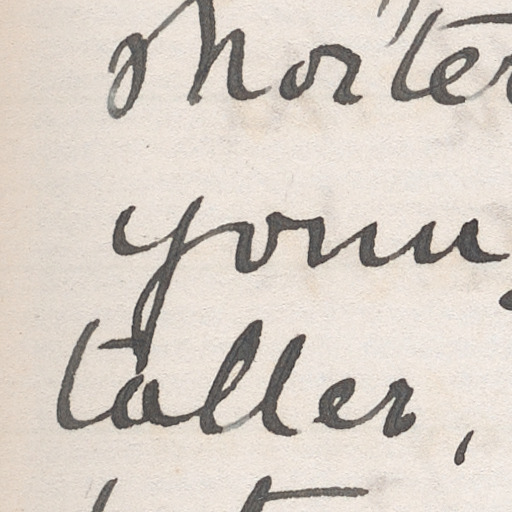 shorter
young
taller,